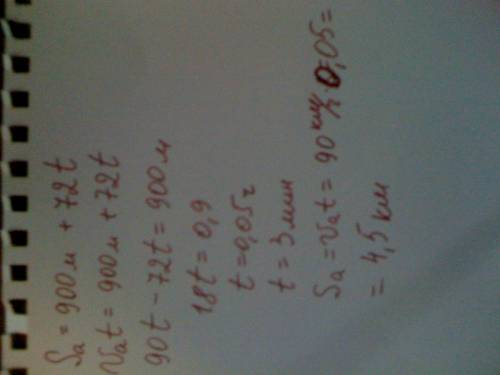 Sa = 900м + 72t
Vat = 900м + 72t
90t - 72t = 900м
18t = 0,9
t = 0,05ч
t = 3мин
Sa = Vat = 90 км/ч · 0,05 =
= 4,5 км